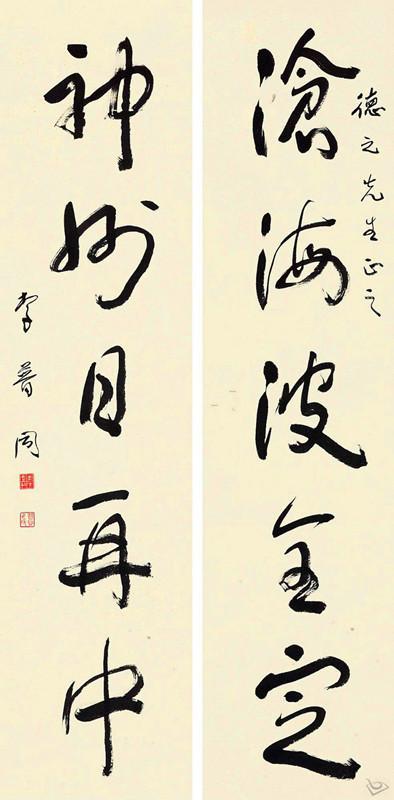 德元先生正之
滄海波全定
神州日再中
李普同